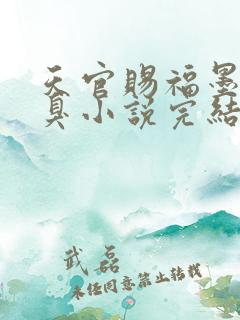 天官賜福墨
臭小說完結
武磊
未经同意禁止转载